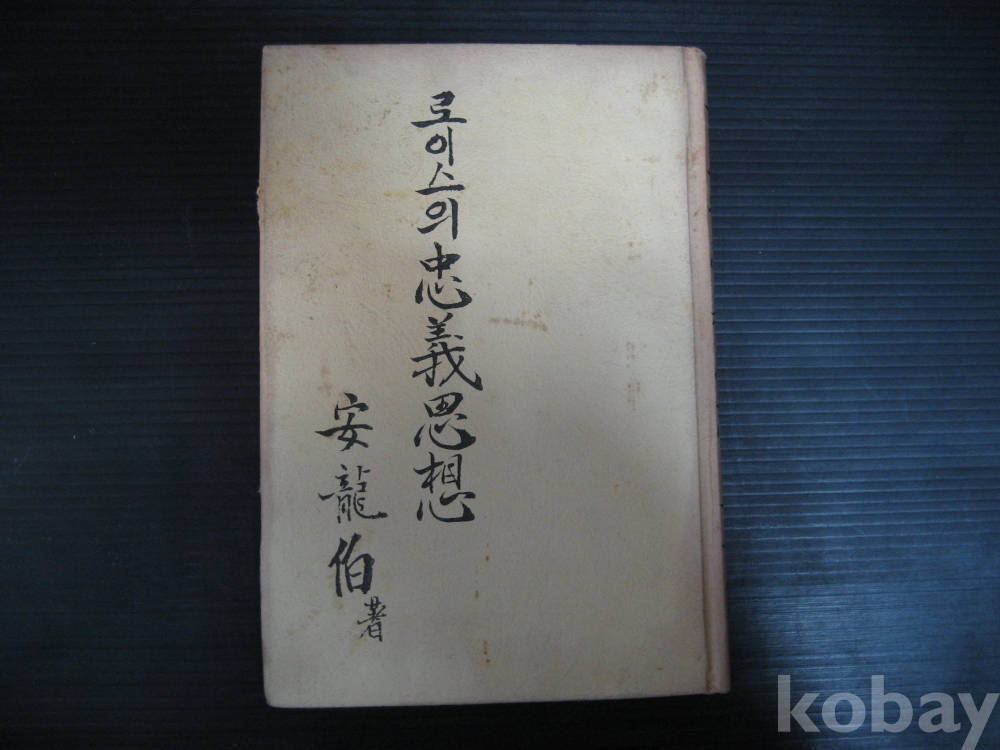 로이스의忠義思想
安龍伯 著
kobay